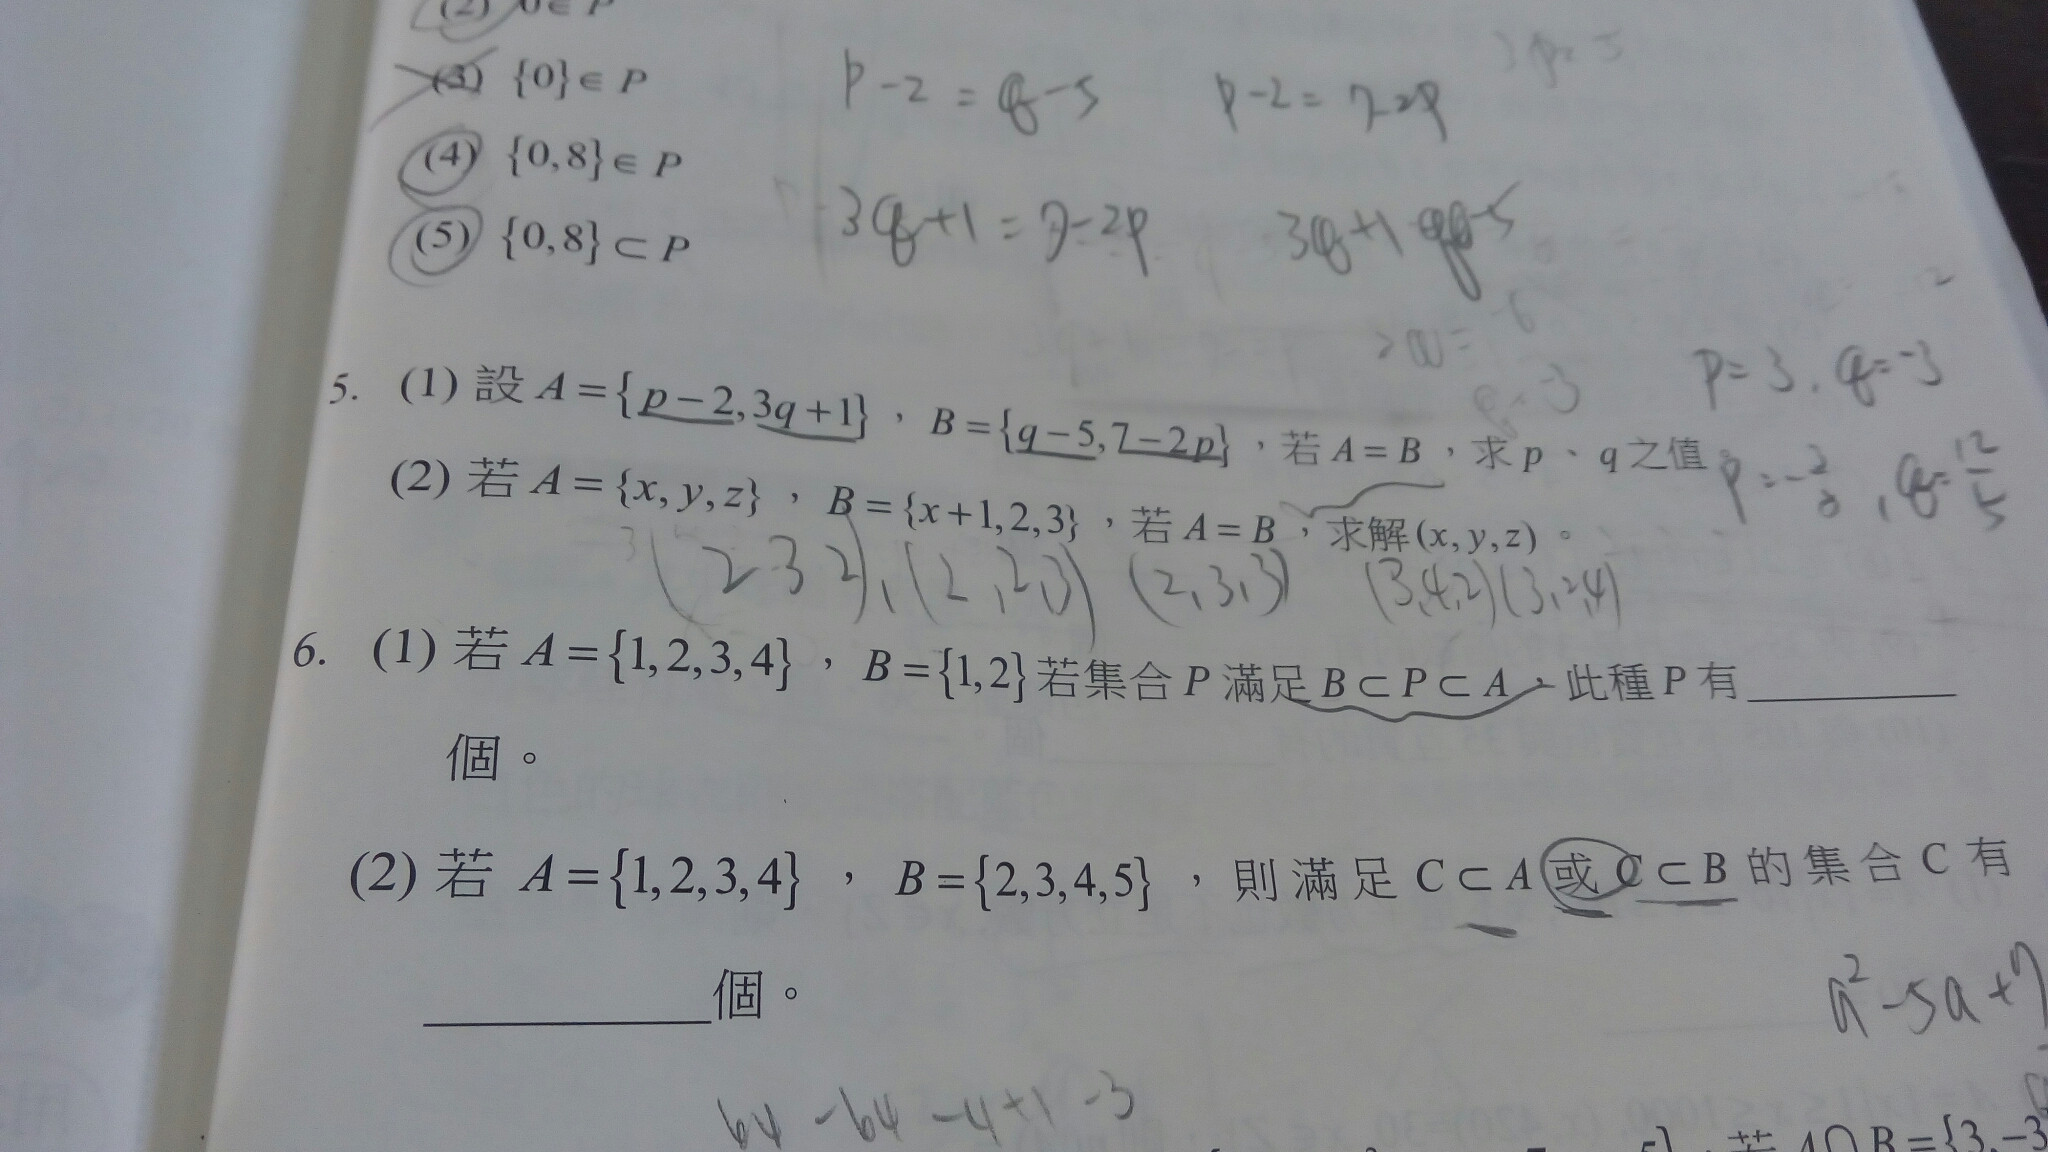 (2) 0∈P
(3) {0}∈P
p-2=q-5 p-2=7-2p
(4) {0,8}∈P
(5) {0,8}⊂P
3q+1=7-2p 3q+1 q-5
p=3, q=-3
5. (1) 設 A={p-2,3q+1}，B={q-5,7-2p}，若 A=B，求 p、q 之值
(2) 若 A={x,y,z}，B={x+1,2,3}，若 A=B，求解(x,y,z)。
(2 3 2), (2,2,3) (2,3,3) (3,4,2)(3,2,4)
6. (1) 若 A={1,2,3,4}，B={1,2} 若集合 P 滿足 B⊂P⊂A，此種 P 有
個。
(2) 若 A={1,2,3,4}，B={2,3,4,5}，則滿足 C⊂A 或 C⊂B 的集合 C 有
個。
a²-5a+7
64-64-4+1-3
若 A∩B={3,-3